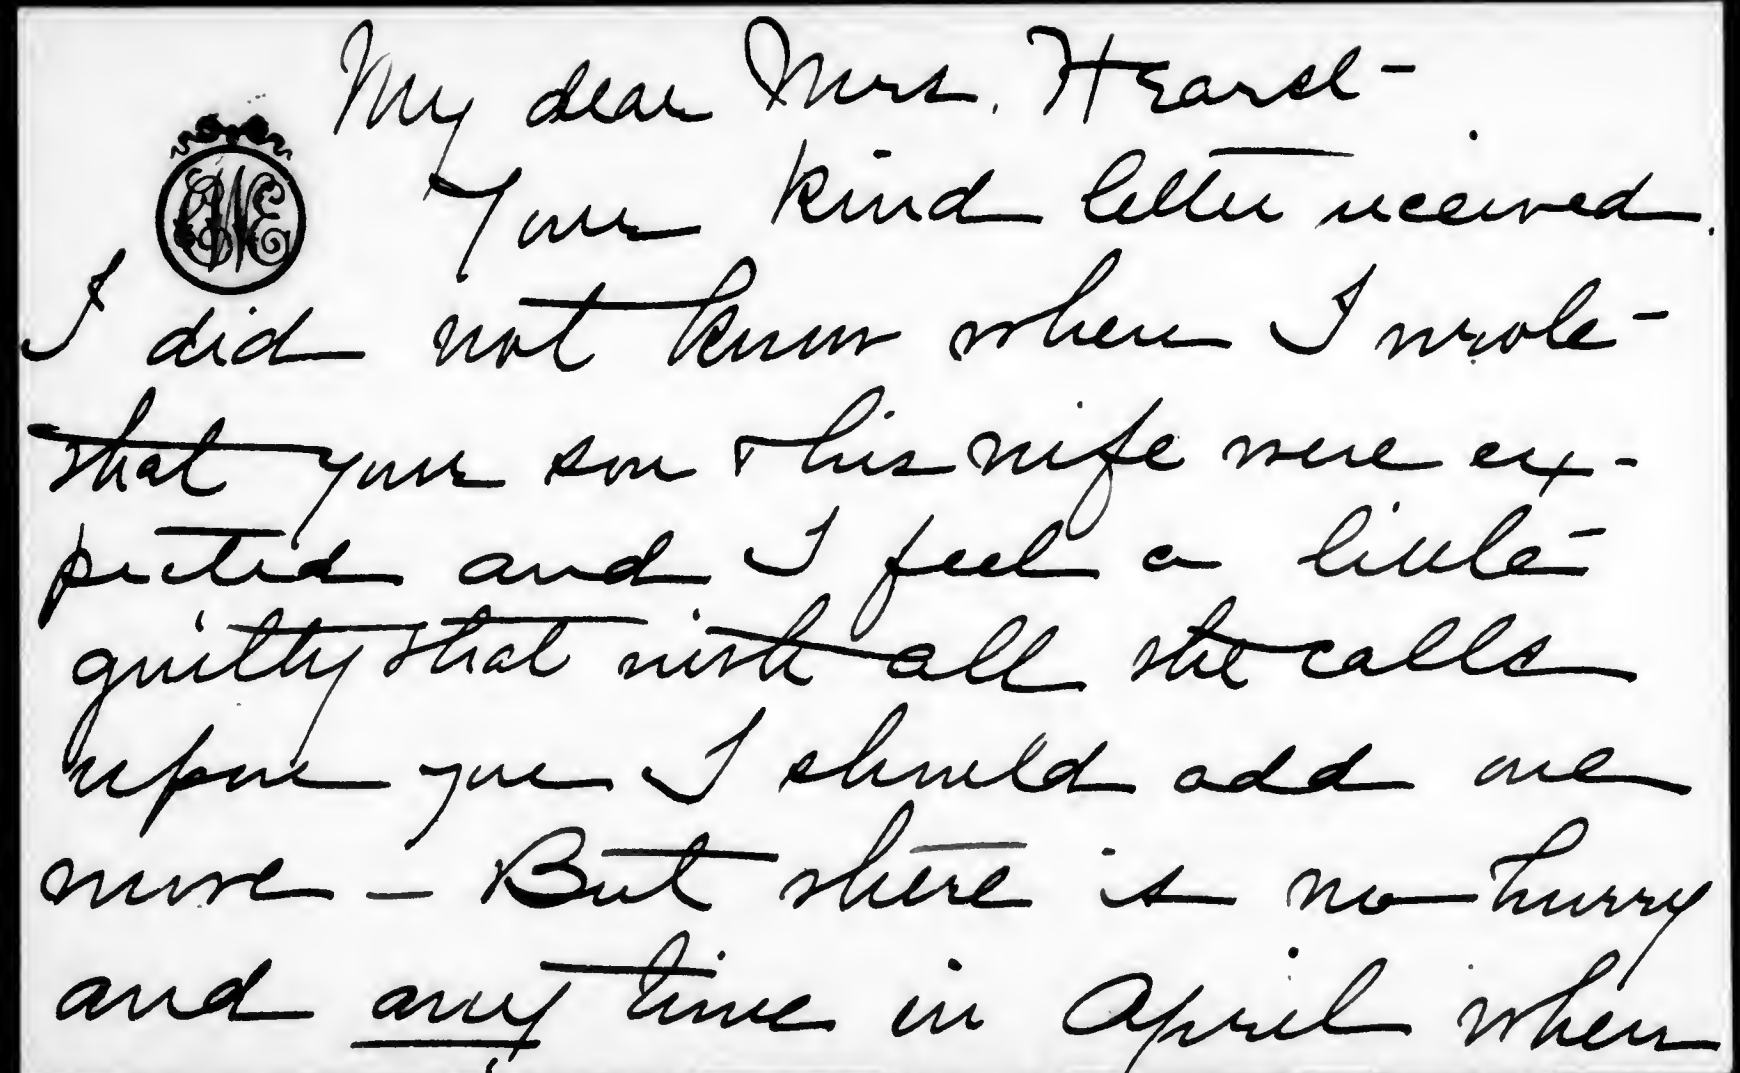 My dear Mrs. Hearst -
Your kind letter received.
I did not know when I wrote -
that your son & his wife were ex-
pected and I feel a little -
guilty that with all the calls
upon you I should add one
more - But there is no hurry
and any time in April when